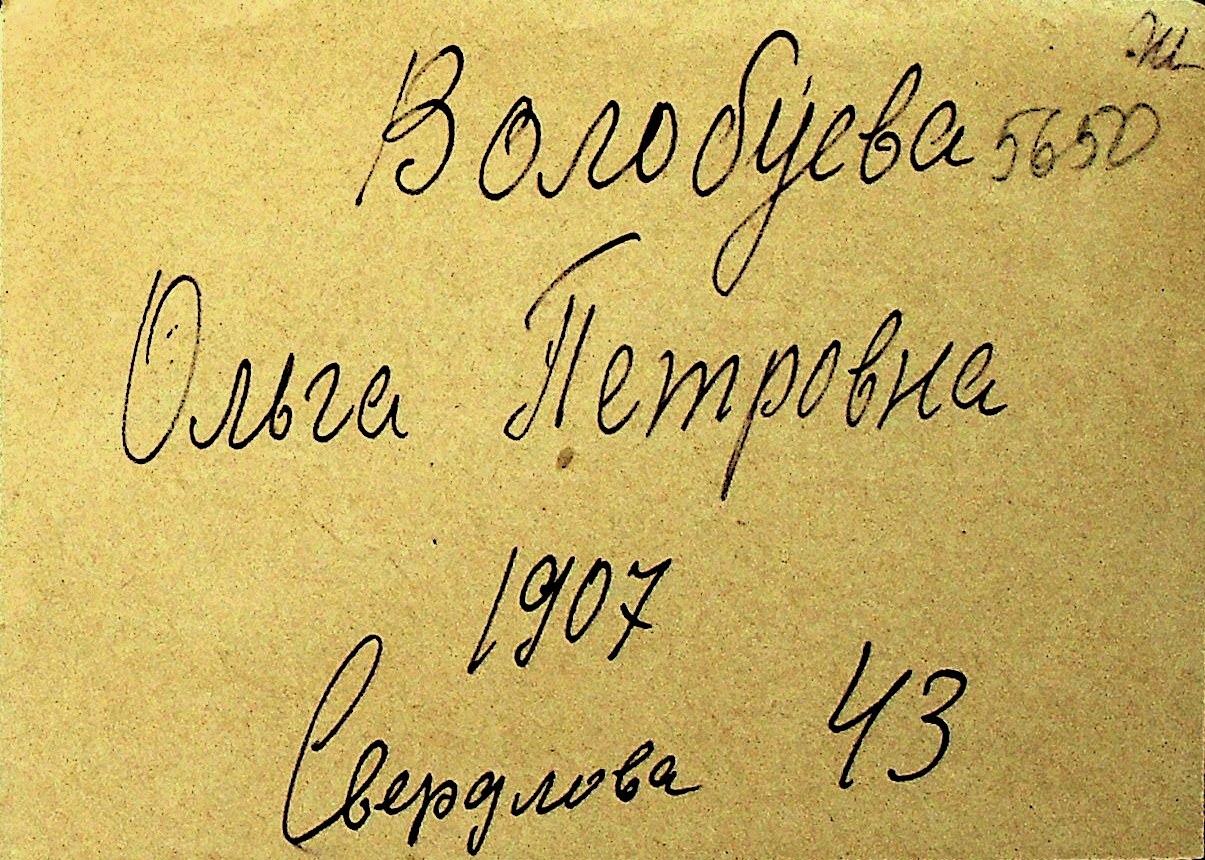 Волобуева 5650
Ольга Петровна
1907
Свердлова 43